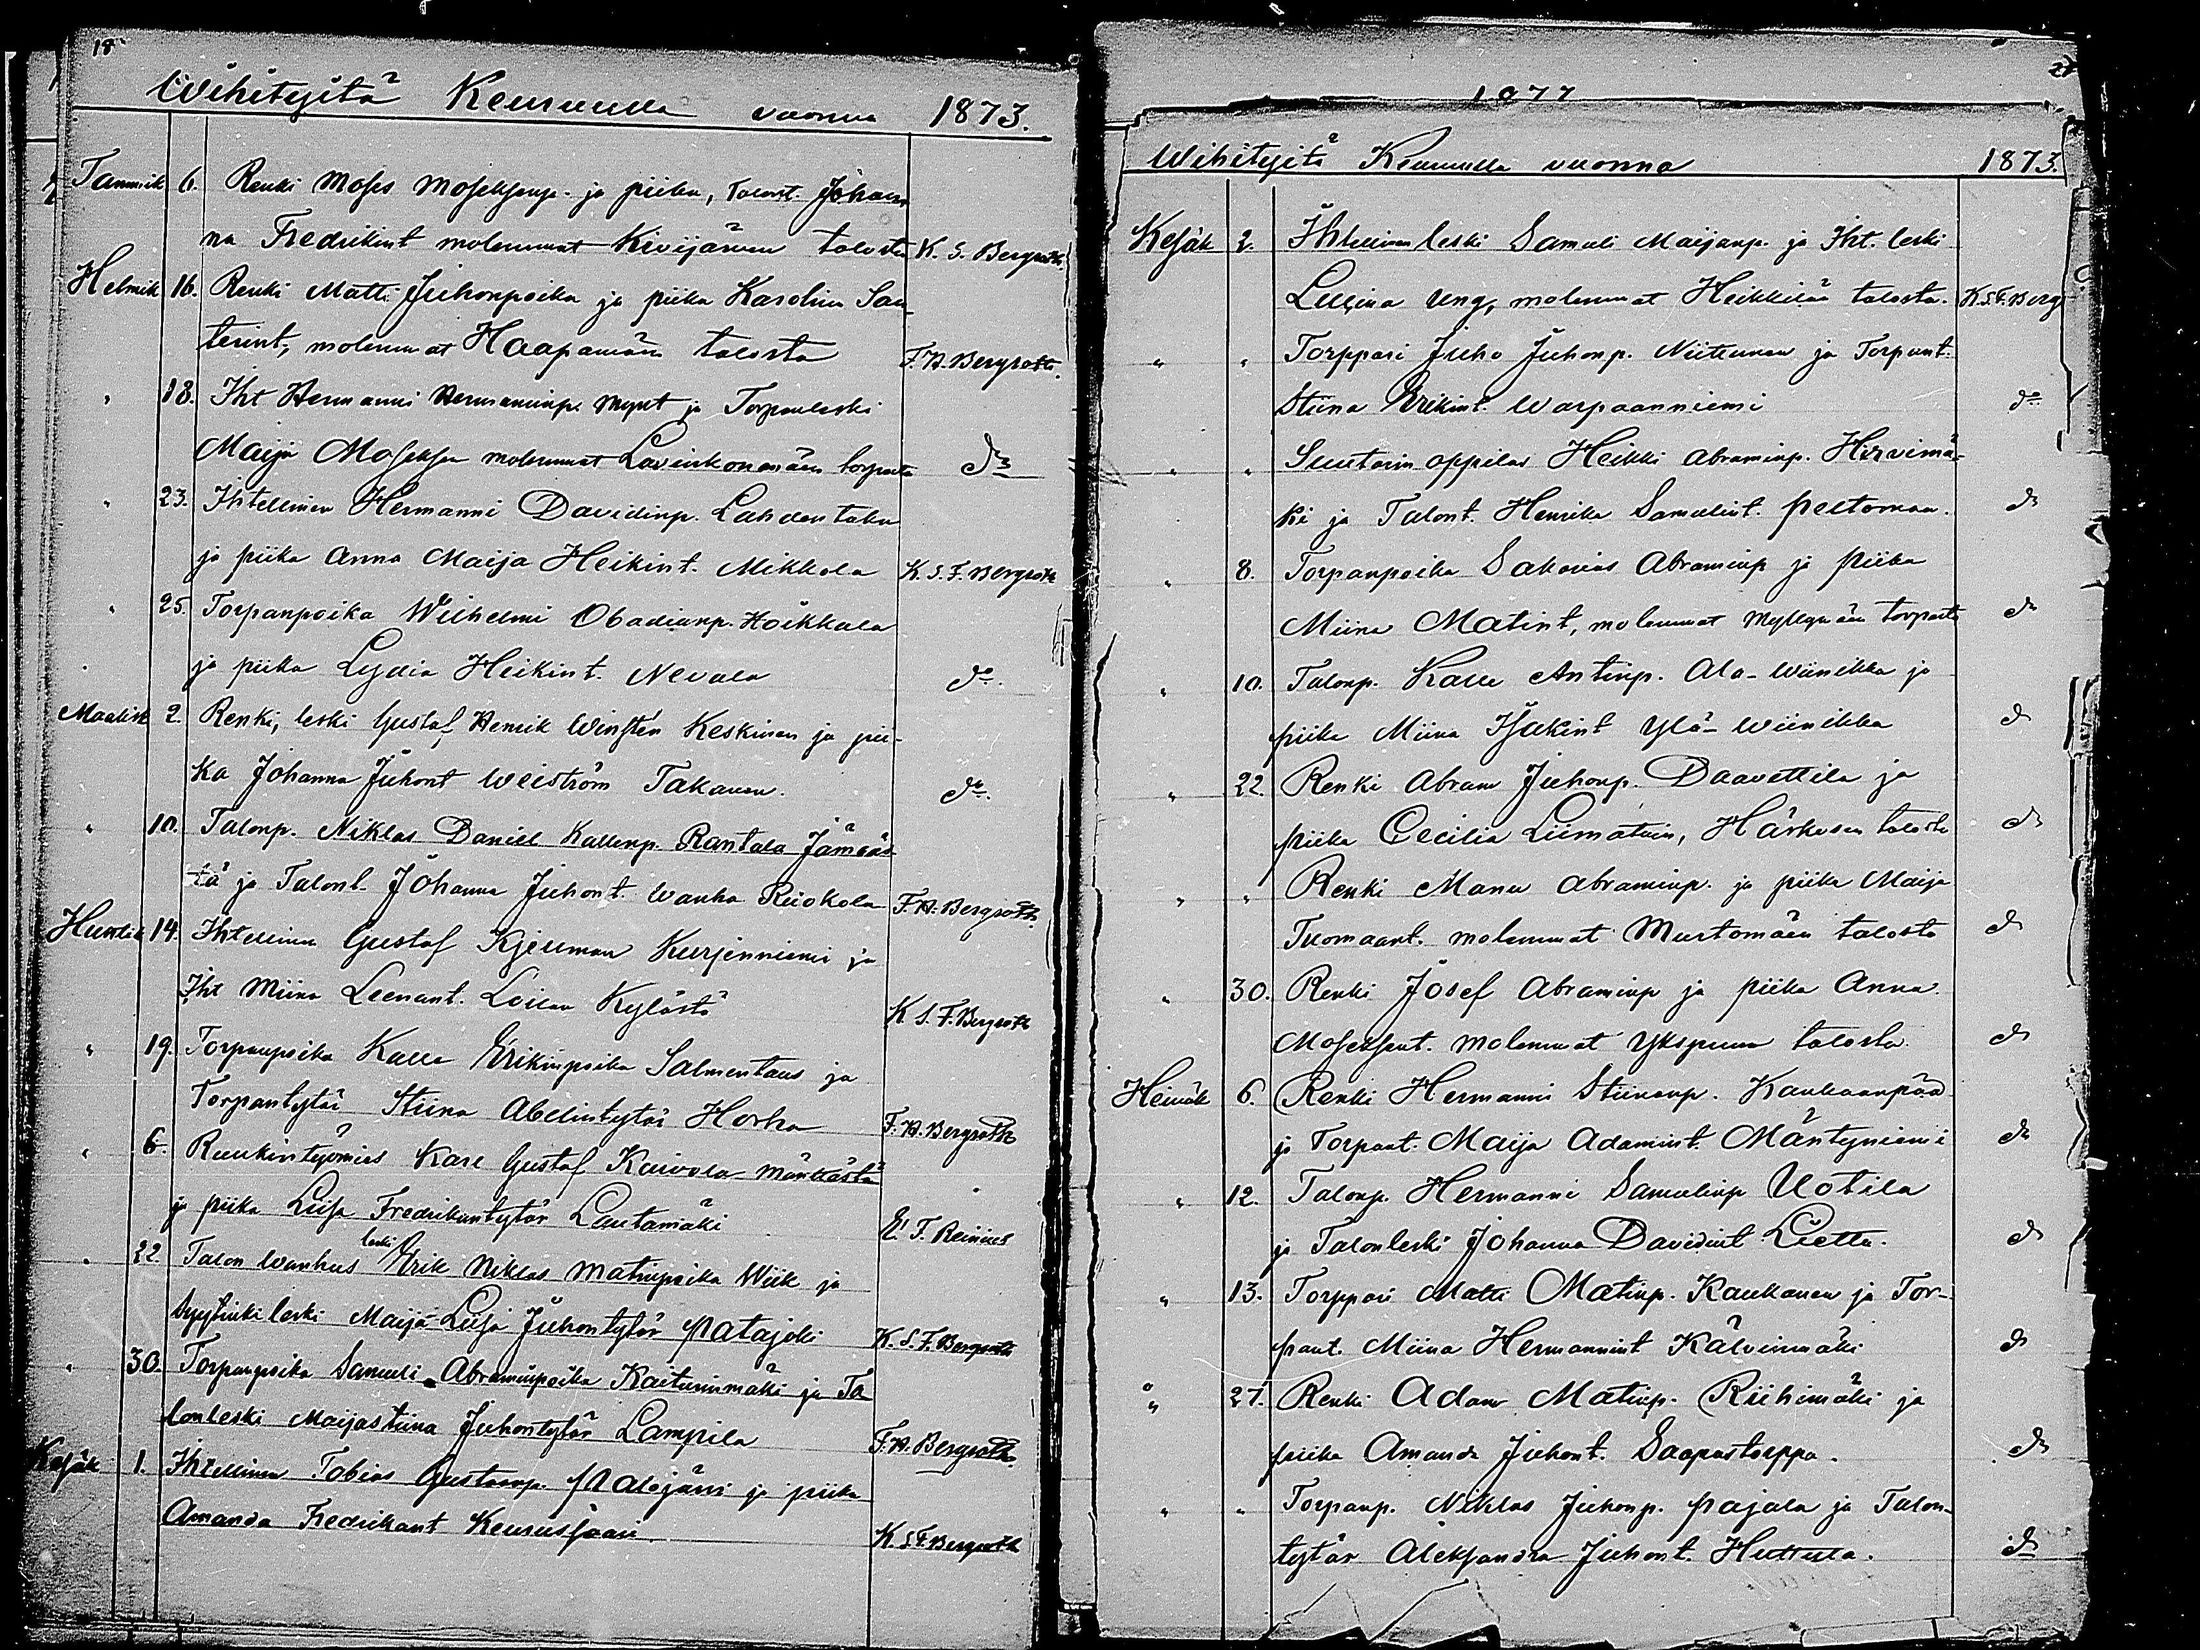 18
Wihityitä Keuruulla vuonna 1873.
Tammik 6. Renki Moses Moseksenp. ja piika, Talont. Johan
na Fredrikint molemmat Kivijärven talosta K. S. Bergroth.
Helmik 16. Renki Matti Juhonpoika ja piika Karolina San
terint, molemmat Haapamäen talosta F. H. Bergroth.
" 18. Iht Hermanni Hermaninp. Mynt ja Torpanleski
Maija Moseksen molemmat torpasta do
" 23. Ihtellinen Hermanni Davidinp. Lahdentaka
ja piika Anna Maija Heikint. Mikkola K. S. F. Bergroth
" 25. Torpanpoika Wilhelmi Obadianp. Hoikkala
ja piika Lydia Heikint. Nevala do.
Maalisk 2. Renki, leski Gustaf Henrik Winsten Keskinen ja pii-
ka Johanna Juhont Weiström Takanen. do.
" 10. Talonp. Niklas Daniel Kallenp. Rantala Jämsäs
tä ja Talont. Johanna Juhont. Wanha Riiokola F. H. Bergroth
Huhtik 14. Ihtellinen Gustaf Kjellman Kurjenniemi ja
Iht Miina Leenant. Loilan Kylästä K. S. F. Bergroth
" 19. Torpanpoika Kalle Erikinpoika Salmentaus ja
Torpantytär Stiina Abelintytär Horha F. H. Bergroth
" 6. Ruukintyömies Karl Gustaf Kaivola Mänttästä
ja piika Liisa Fredrikintytär Lautamäki E. F. Reinius
" 22. Talon Wanhus leski Erik Niklas Matinpoika Wiik ja
Syytinki leski Maija Liisa Juhontytär Patajoki K. S. F. Bergroth
" 30. Torpanpoika Samuli Abraminpoika Kaitunmäki ja Ta
lonleski Maijastiina Juhontytär Lampila F. H. Bergroth.
Kesäk 1. Ihtellinen Tobias Gustavinp. Valojärvi ja piika
Amanda Fredrikant Keurussaari K. S. F. Bergroth
1877
Wihityitä Keuruulla vuonna 1873.
Kesäk 2. Ihtellinen leski Samuli Maijanp. ja Iht. leski
Ung, molemmat Heikkilän talosta. K. S. F. Berg
" " Torppari Juho Juhonp. Niittunen ja Torpant.
Stiina Erikint. Warpaanniemi do
" " Suutarin oppilas Heikki Abraminp. Hirvimä-
ki ja Talont. Henrika Samulint. Peltomaa. do
" 8. Torpanpoika Sakarias Abraminp ja Piika
Miina Matint, molemmat Myllymäen torpasta do
" 10. Talonp. Kalle Antinp. Ala-Wiinikka ja
piika Miina Isakint Ylä-Wiinikka do
" 22. Renki Abram Juhonp. Daavettila ja
piika Cecilia Liimatain, Härkösen talosta do
" " Renki Manu Abraminp. ja piika Maija
Tuomaant. molemmat Murtomäen talosta do
" 30. Renki Josef Abraminp ja piika Anna
Moseksent. molemmat Ykspuun talosta. do
Heinäk 6. Renki Hermanni Stiinanp. Kankaanpää
ja Torpant. Maija Adamint. Mäntyniemi do
" 12. Talonp. Hermanni Samulinp Uotila
ja Talonleski Johanna Davidint Lietta. do
" 13. Torppari Matti Matinp. Kaukanen ja Tor-
pant. Miina Hermannint Kälvinmäki do
" 27. Renki Adam Matinp. Riihimäki ja
piika Amanda Juhont. Saapastorppa. do
" " Torpanp. Niklas Juhonp. Pajala ja Talon-
tytär Aleksandra Juhont. Huttula. do